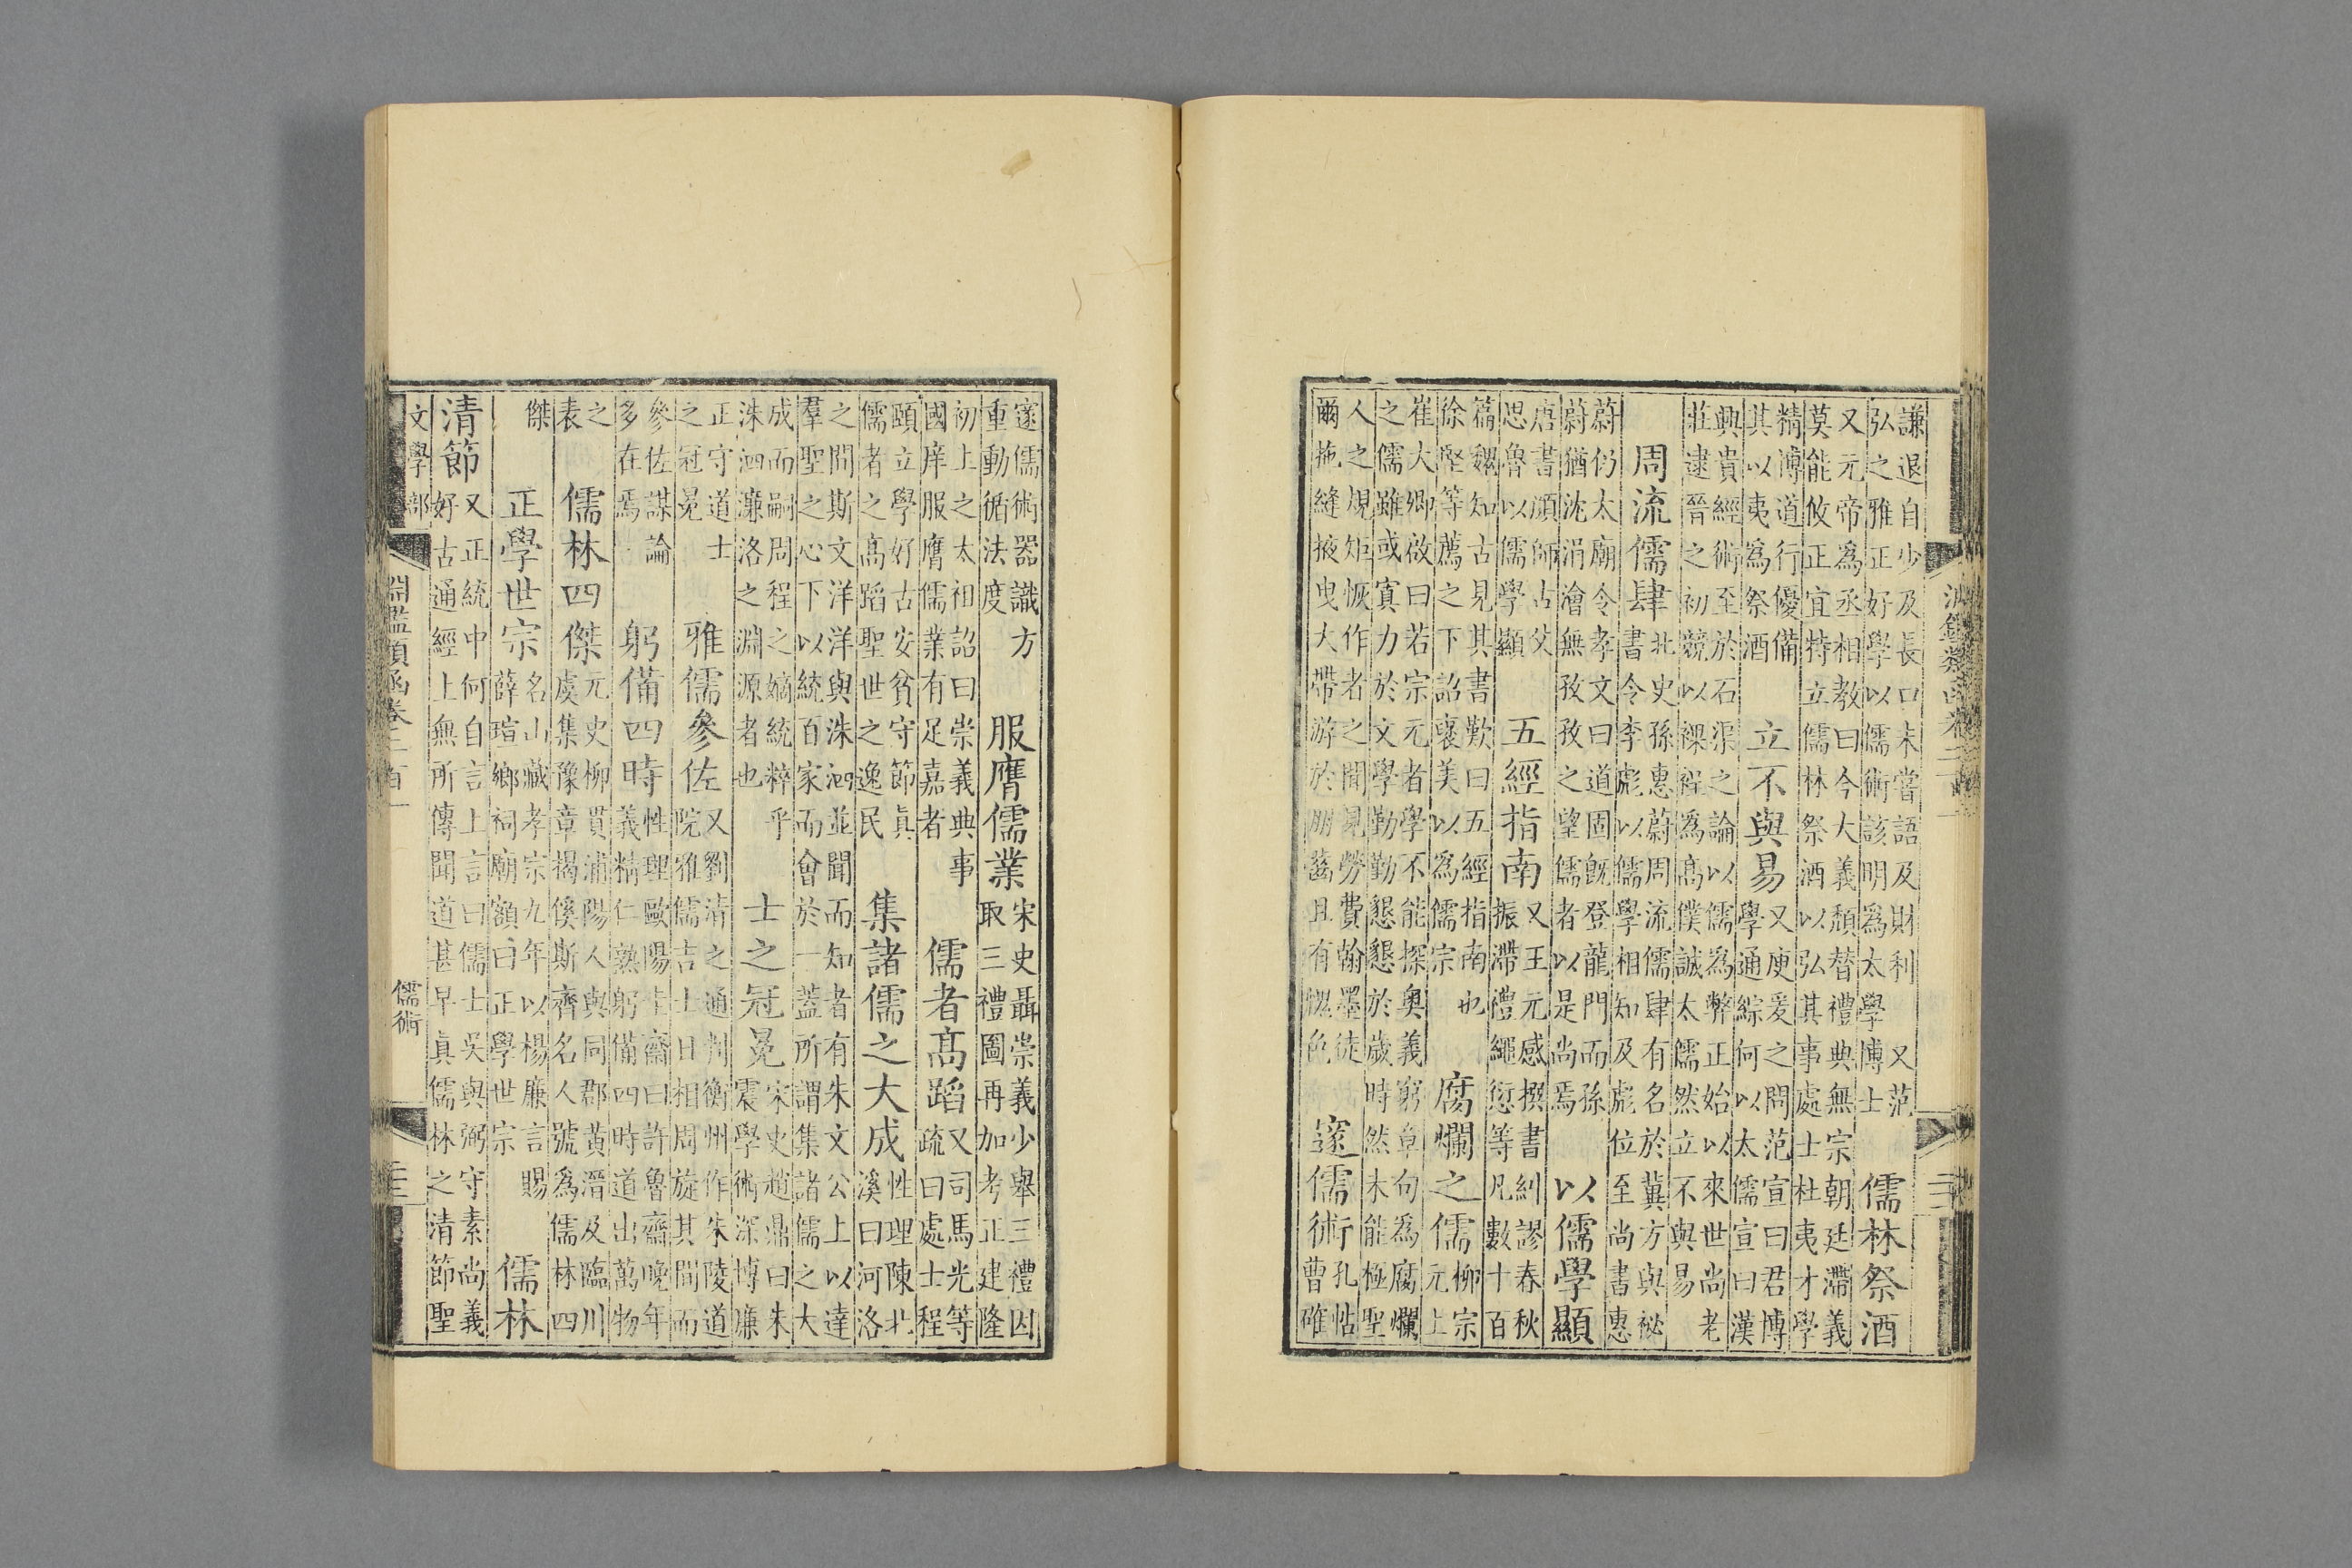 謙退自少及長口未嘗語及財利又范
弘之雅正好學以儒術該明爲太學博士
儒林祭酒
又元帝爲丞相教曰今大義頹替禮典無宗朝廷滯義
莫能攸正宜特立儒林祭酒以弘其事處士杜夷才學
精博道行優備
其以夷爲祭酒
立不與易
又庾爰之問范宣曰君博
學通綜何以太儒宣曰漢
興貴經術至於石渠之論以儒爲弊正始以來世尚老
莊逮晉之初競以裸裎爲高僕誠太儒然立不與易
周流儒肆
北史孫惠蔚周流儒肆有名於冀方與祕
書令李彪以儒學相知及彪位至尚書惠
蔚仍太廟令孝文曰道固旣登龍門而孫
蔚猶沈涓澮無孜孜之望儒者以是尚焉
以儒學顯
唐書顏師古父
思魯以儒學顯
五經指南
又王元感撰書糾謬春秋
振滯禮繩愆等凡數十百
篇魏知古見其書歎曰五經指南也
徐堅等薦之下詔襃美以爲儒宗
腐爛之儒
柳宗
元上
崔大卿啟曰若宗元者學不能探奧義窮章句爲腐爛
之儒雖或寘力於文學勤勤懇懇於歲時然未能極聖
人之規矩恢作者之聞見勞費翰墨徒
爾拖縫掖曳大帶游於朋齒且有愧色
邃儒術
孔帖
曹確
邃儒術器識方
重動循法度
服膺儒業
宋史聶崇義少舉三禮因
取三禮圖再加考正建隆
初上之太祖詔曰崇義典事
國庠服膺儒業有足嘉者
儒者高蹈
又司馬光等
疏曰處士程
頤立學好古安貧守節眞
儒者之高蹈聖世之逸民
集諸儒之大成
性理陳北
溪曰河洛
之問斯文洋洋與洙泗並聞而知者有朱文公上以達
羣聖之心下以統百家而會於一蓋所謂集諸儒之大
成而嗣周程之嫡統粹乎
洙泗濂洛之淵源者也
士之冠冕
宋史趙鼎曰朱
震學術深博廉
正守道士
之冠冕
雅儒參佐
又劉清之通判衡州作朱陵道
院雅儒吉士日相周旋其間而
參佐謀論
多在焉
躬備四時
性理歐陽圭齋曰許魯齋晚年
義精仁熟躬備四時道出萬物
之
表
儒林四傑
元史柳貫浦陽人與同郡黃溍及臨川
虞集豫章揭傒斯齊名人號爲儒林四
傑
正學世宗
名山藏孝宗九年以楊廉言賜
薛瑄鄉祠廟額曰正學世宗
儒林
清節
又正統中何自言上言曰儒士吳與弼守素尚義
好古通經上無所傳聞道甚早真儒林之清節聖
文學部
淵鑑類函卷二百一
儒術